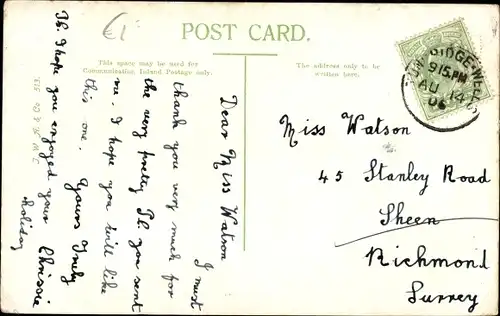 £1
POST CARD.
This space may be used for
Communication, Inland Postage only.
The address only to be
written here.
9 15.PM
AU 14
06
Dear Miss Watson
I must
thank you very much for
the very pretty P.C. you sent
me. I hope you will like
this one.
Yours Truly
Chrissie
P.S. I hope you enjoyed your
holiday
Miss Watson
45 Stanley Road
Sheen
Richmond
Surrey